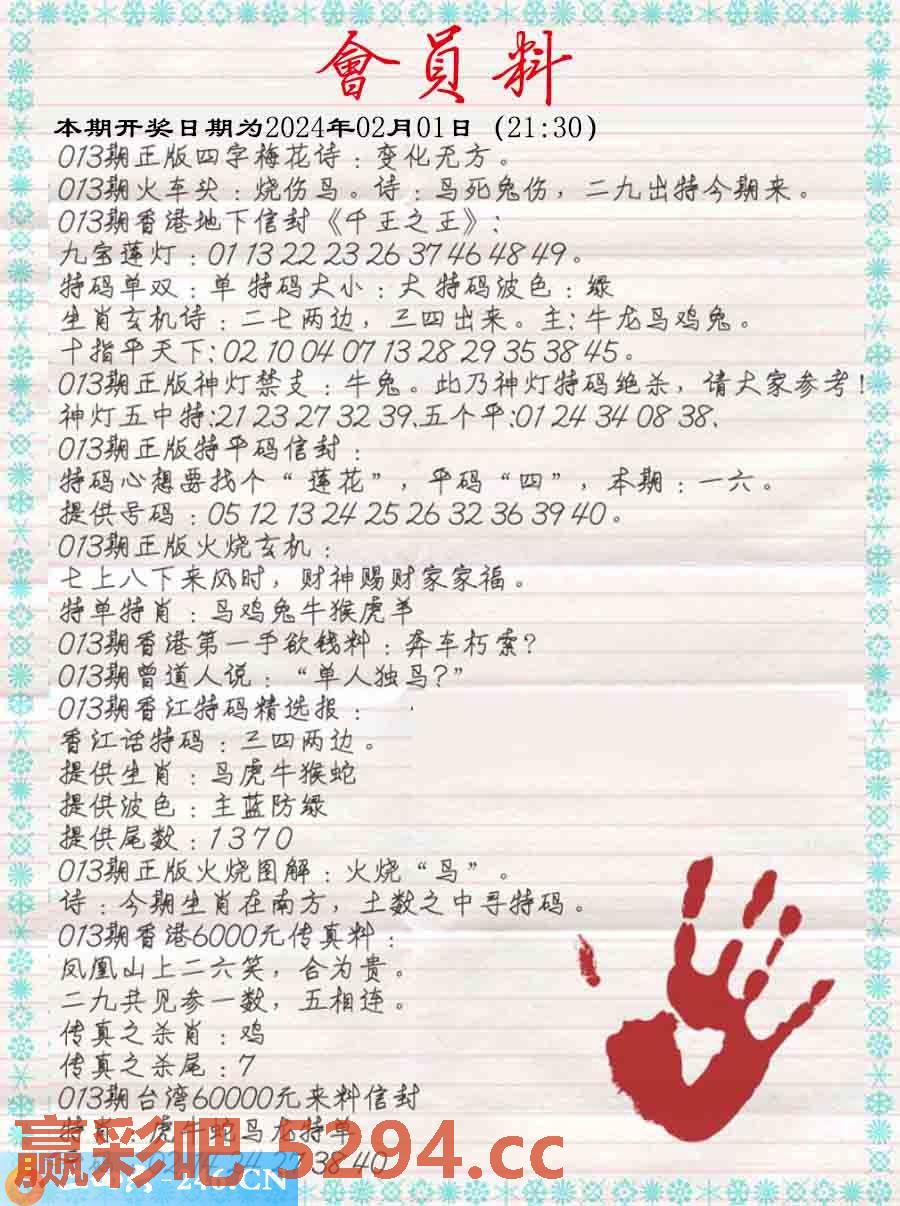 會員料
本期开奖日期为2024年02月01日 (21:30)
013期正版四字梅花诗：变化无方。
013期火车头：烧伤鸟。诗：鸟死兔伤，二九出特今期来。
013期香港地下信封《千王之王》:
九宝莲灯：01 13 22 23 26 37 46 48 49。
特码单双：单 特码大小：大 特码波色：绿
生肖玄机诗：二七两边，三四出来。主: 牛龙鸟鸡兔。
十指平天下: 02 10 04 07 13 28 29 35 38 45。
013期正版神灯禁支：牛兔。此乃神灯特码绝杀，请大家参考！
神灯五中特:21 23 27 32 39.五个平:01 24 34 08 38.
013期正版特平码信封：
特码心想要找个“莲花”，平码“四”，本期：一六。
提供号码：05 12 13 24 25 26 32 36 39 40。
013期正版火烧玄机：
七上八下来风时，财神赐财家家福。
特单特肖：马鸡兔牛猴虎羊
013期香港第一手欲钱料：奔车朽索?
013期曾道人说：“单人独马?”
013期香江特码精选报：
香江话特码：三四两边。
提供生肖：马虎牛猴蛇
提供波色：主蓝防绿
提供尾数：1 3 7 0
013期正版火烧图解：火烧“鸟”。
诗：今期生肖在南方，土数之中寻特码。
013期香港6000元传真料：
凤凰山上二六笑，合为贵。
二九共见参一数，五相连。
传真之杀肖：鸡
传真之杀尾：7
013期台湾60000元来料信封
特肖：虎牛蛇马龙特单
38 40
赢彩吧 5294.cc
246.CN